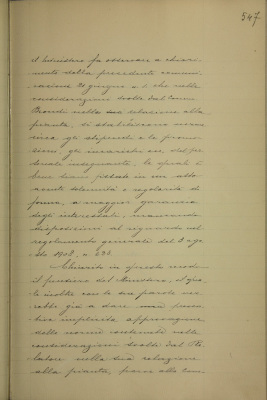 547
il Ministero fa osservare a chiari-
mento della precedente comuni-
cazione 20 giugno u. s. che nelle
considerazioni svolte dal Comm.
nella sua relazione alla
pianta, si stabiliscono norme
circa gli stipendi e le promo-
zioni, gli incarichi ecc. del per-
sonale insegnante, le quali è
bene siano fissate in un atto
avente solennità e regolarità di
forma, a maggior garanzia
degli interessati, mancando
disposizioni al riguardo nel
regolamento generale del 2 ago-
sto 1908, n. 
Chiarito in questo modo
il pensiero del Ministero, il qua-
le inoltre con le sue parole ver-
rebbe già a dare una
tiva implicita approvazione
delle norme contenute nelle
considerazioni svolte dal Re-
latore nella sua relazione
alla pianta, piano alla